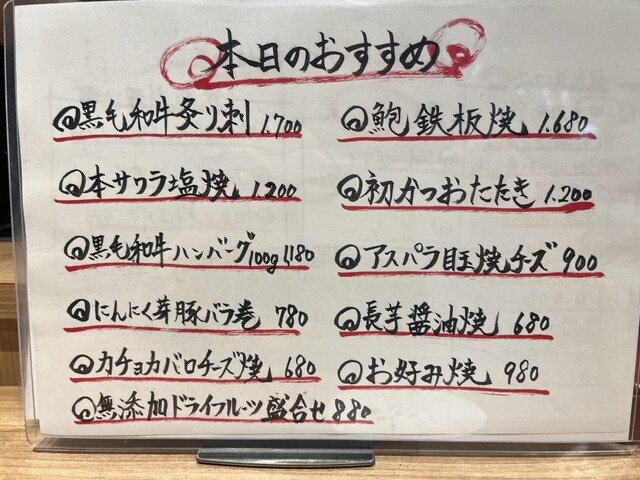 本日のおすすめ
黒毛和牛炙り刺 1.700
本サワラ塩焼 1.200
黒毛和牛ハンバーグ100g 1,180
にんにく芽豚バラ巻 780
カチョカバロチーズ焼 680
無添加ドライフルーツ盛合せ 880
鮑鉄板焼 1.680
初かつおたたき 1.200
アスパラ目玉焼チーズ 900
長芋醤油焼 680
お好み焼 980